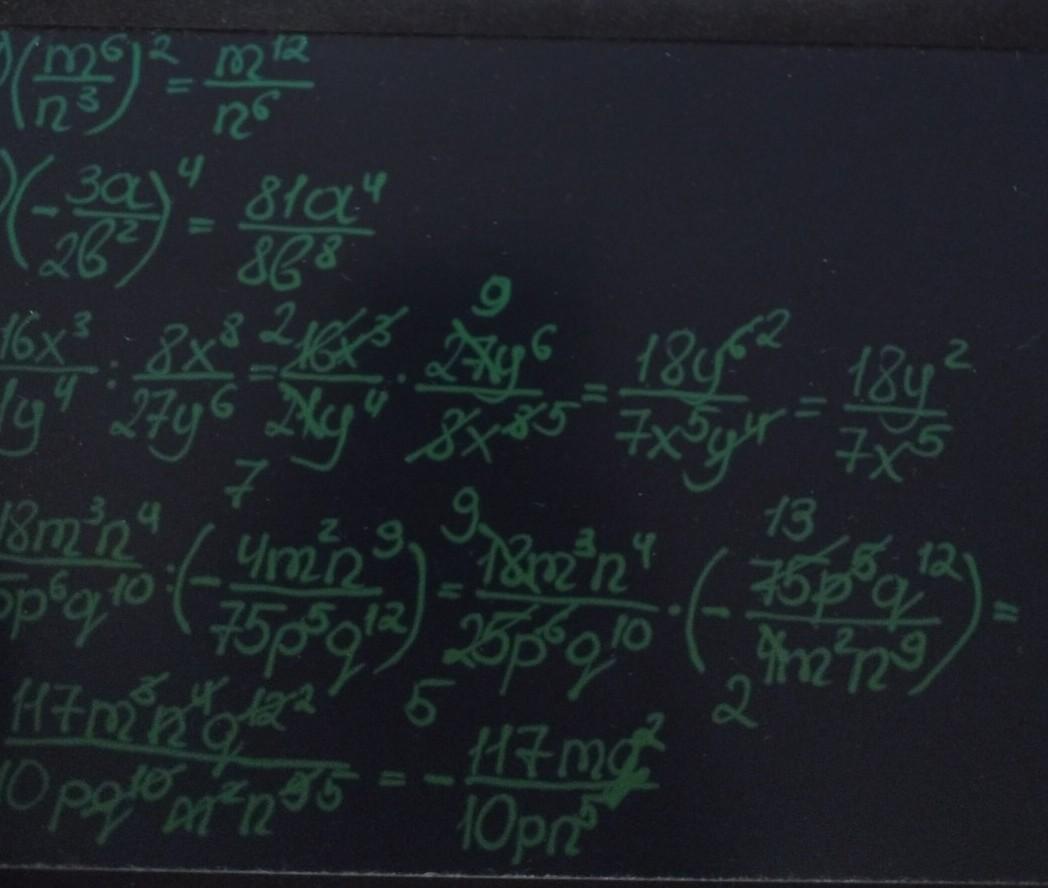 )(m⁶/n³)² = m¹²/n⁶
)(-3a/2b²)⁴ = 81a⁴/8b⁸
16x³/1y⁴ : 8x⁸/27y⁶ = 2 16x³/21y⁴ 7 · 9 27y⁶/8x⁸ 5 = 18y⁶ 2/7x⁵y⁴ = 18y²/7x⁵
18m³n⁴/5p⁶q¹⁰ : (-4m²n⁹/75p⁵q¹²) = 9 18m³n⁴/25p⁶q¹⁰ 5 · (-13 75p⁵q¹²/4m²n⁹ 2) =
117m³n⁴q¹² 2/10pq¹⁰m²n⁹ 5 = -117mq²/10pn⁵